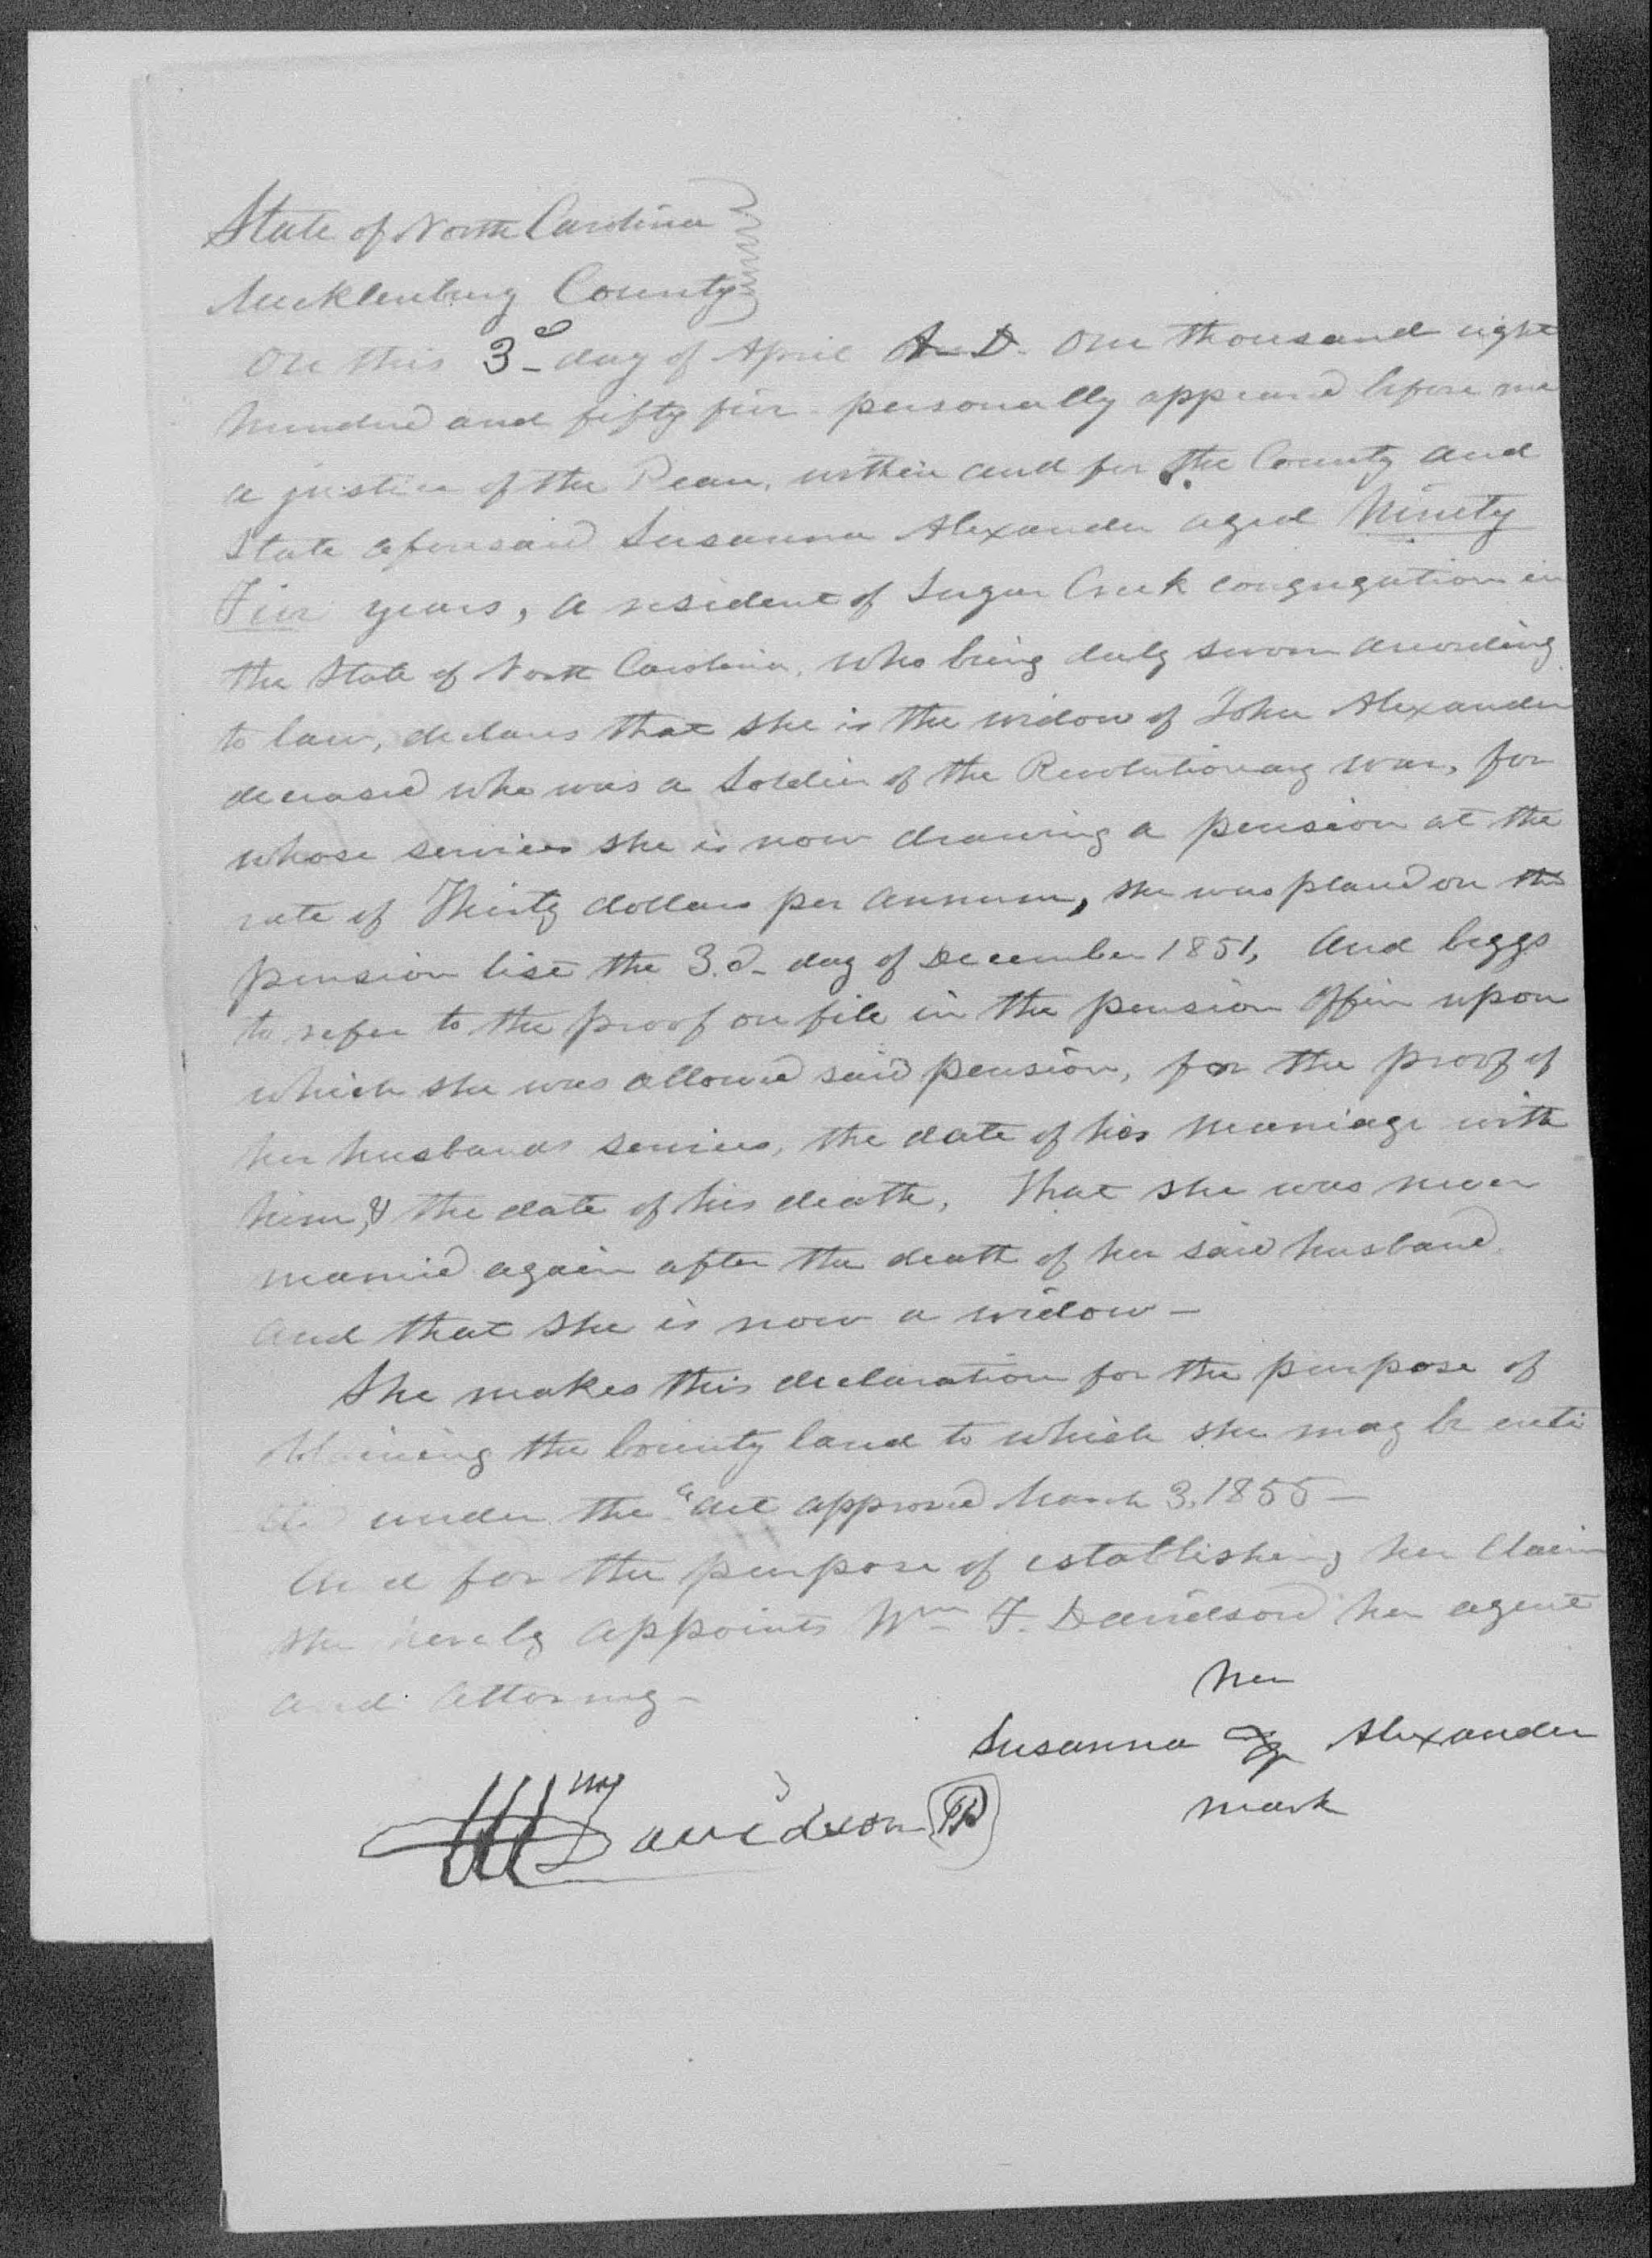 State of North Carolina
Mecklenburg County
On this 3d day of April A. D. One thousand eight
hundred and fifty five personally appeared before me
a justice of the Peace, within and for the County and
State aforesaid Susanna Alexander aged Ninety
Five years, a resident of Sugar Creek congregation in
the State of North Carolina, who being duly sworn according
to law, declares that she is the widow of John Alexander
deceased who was a Soldier of the Revolutionary war, for
whose services she is now drawing a pension at the
rate of Thirty dollars per annum, she was placed on the
pension list the 3.d day of December 1851, and beggs
to refer to the proof on file in the pension office upon
which she was allowed said pension, for the proof of
her husbands services, the date of her marriage with
him, & the date of his death, that she was never
married again after the death of her said husband.
and that she is now a widow –
She makes this declaration for the purpose of
obtaining the bounty land to which she may be enti
tled under the "act approved March 3, 1855 –
And for the purpose of establishing her claim
she hereby appoints Wm F. Davidson her agent
and attorney –
her
Susanna Alexander
mark
Davidson JP